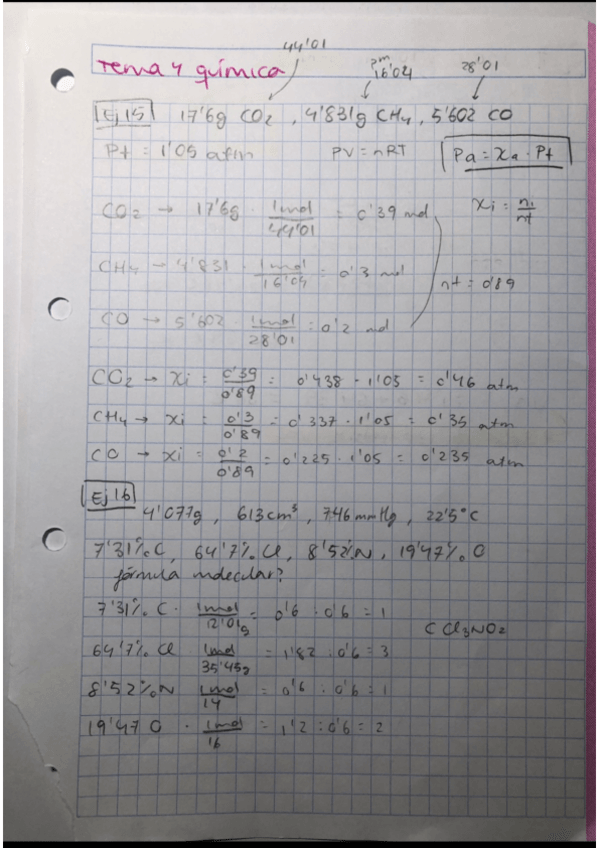 44'01
Tema 4 química
Pm
16'04
28'01
Ej 15 17'6g CO2, 4'831g CH4, 5'602 CO
Pt = 1'05 atm PV = nRT Pa = Xa · Pt
CO2 → 17'6g · 1mol/44'01 = 0'39 mol Xi = ni/nt
CH4 → 4'831 · 1mol/16'04 = 0'3 mol nt = 0'89
CO → 5'602 · 1mol/28'01 = 0'2 mol
CO2 → Xi = 0'39/0'89 = 0'438 · 1'05 = 0'46 atm
CH4 → Xi = 0'3/0'89 = 0'337 · 1'05 = 0'35 atm
CO → Xi = 0'2/0'89 = 0'225 · 1'05 = 0'235 atm
Ej 16
4'077g, 613cm³, 746mmHg, 22'5°C
7'31% C, 64'7% Cl, 8'52% N, 19'47% O
fórmula molecular?
7'31% C · 1mol/12'01g = 0'6 : 0'6 = 1
CCl3NO2
64'7% Cl · 1mol/35'45g = 1'82 : 0'6 = 3
8'52% N 1mol/14 = 0'6 : 0'6 = 1
19'47 O · 1mol/16 = 1'2 : 0'6 = 2